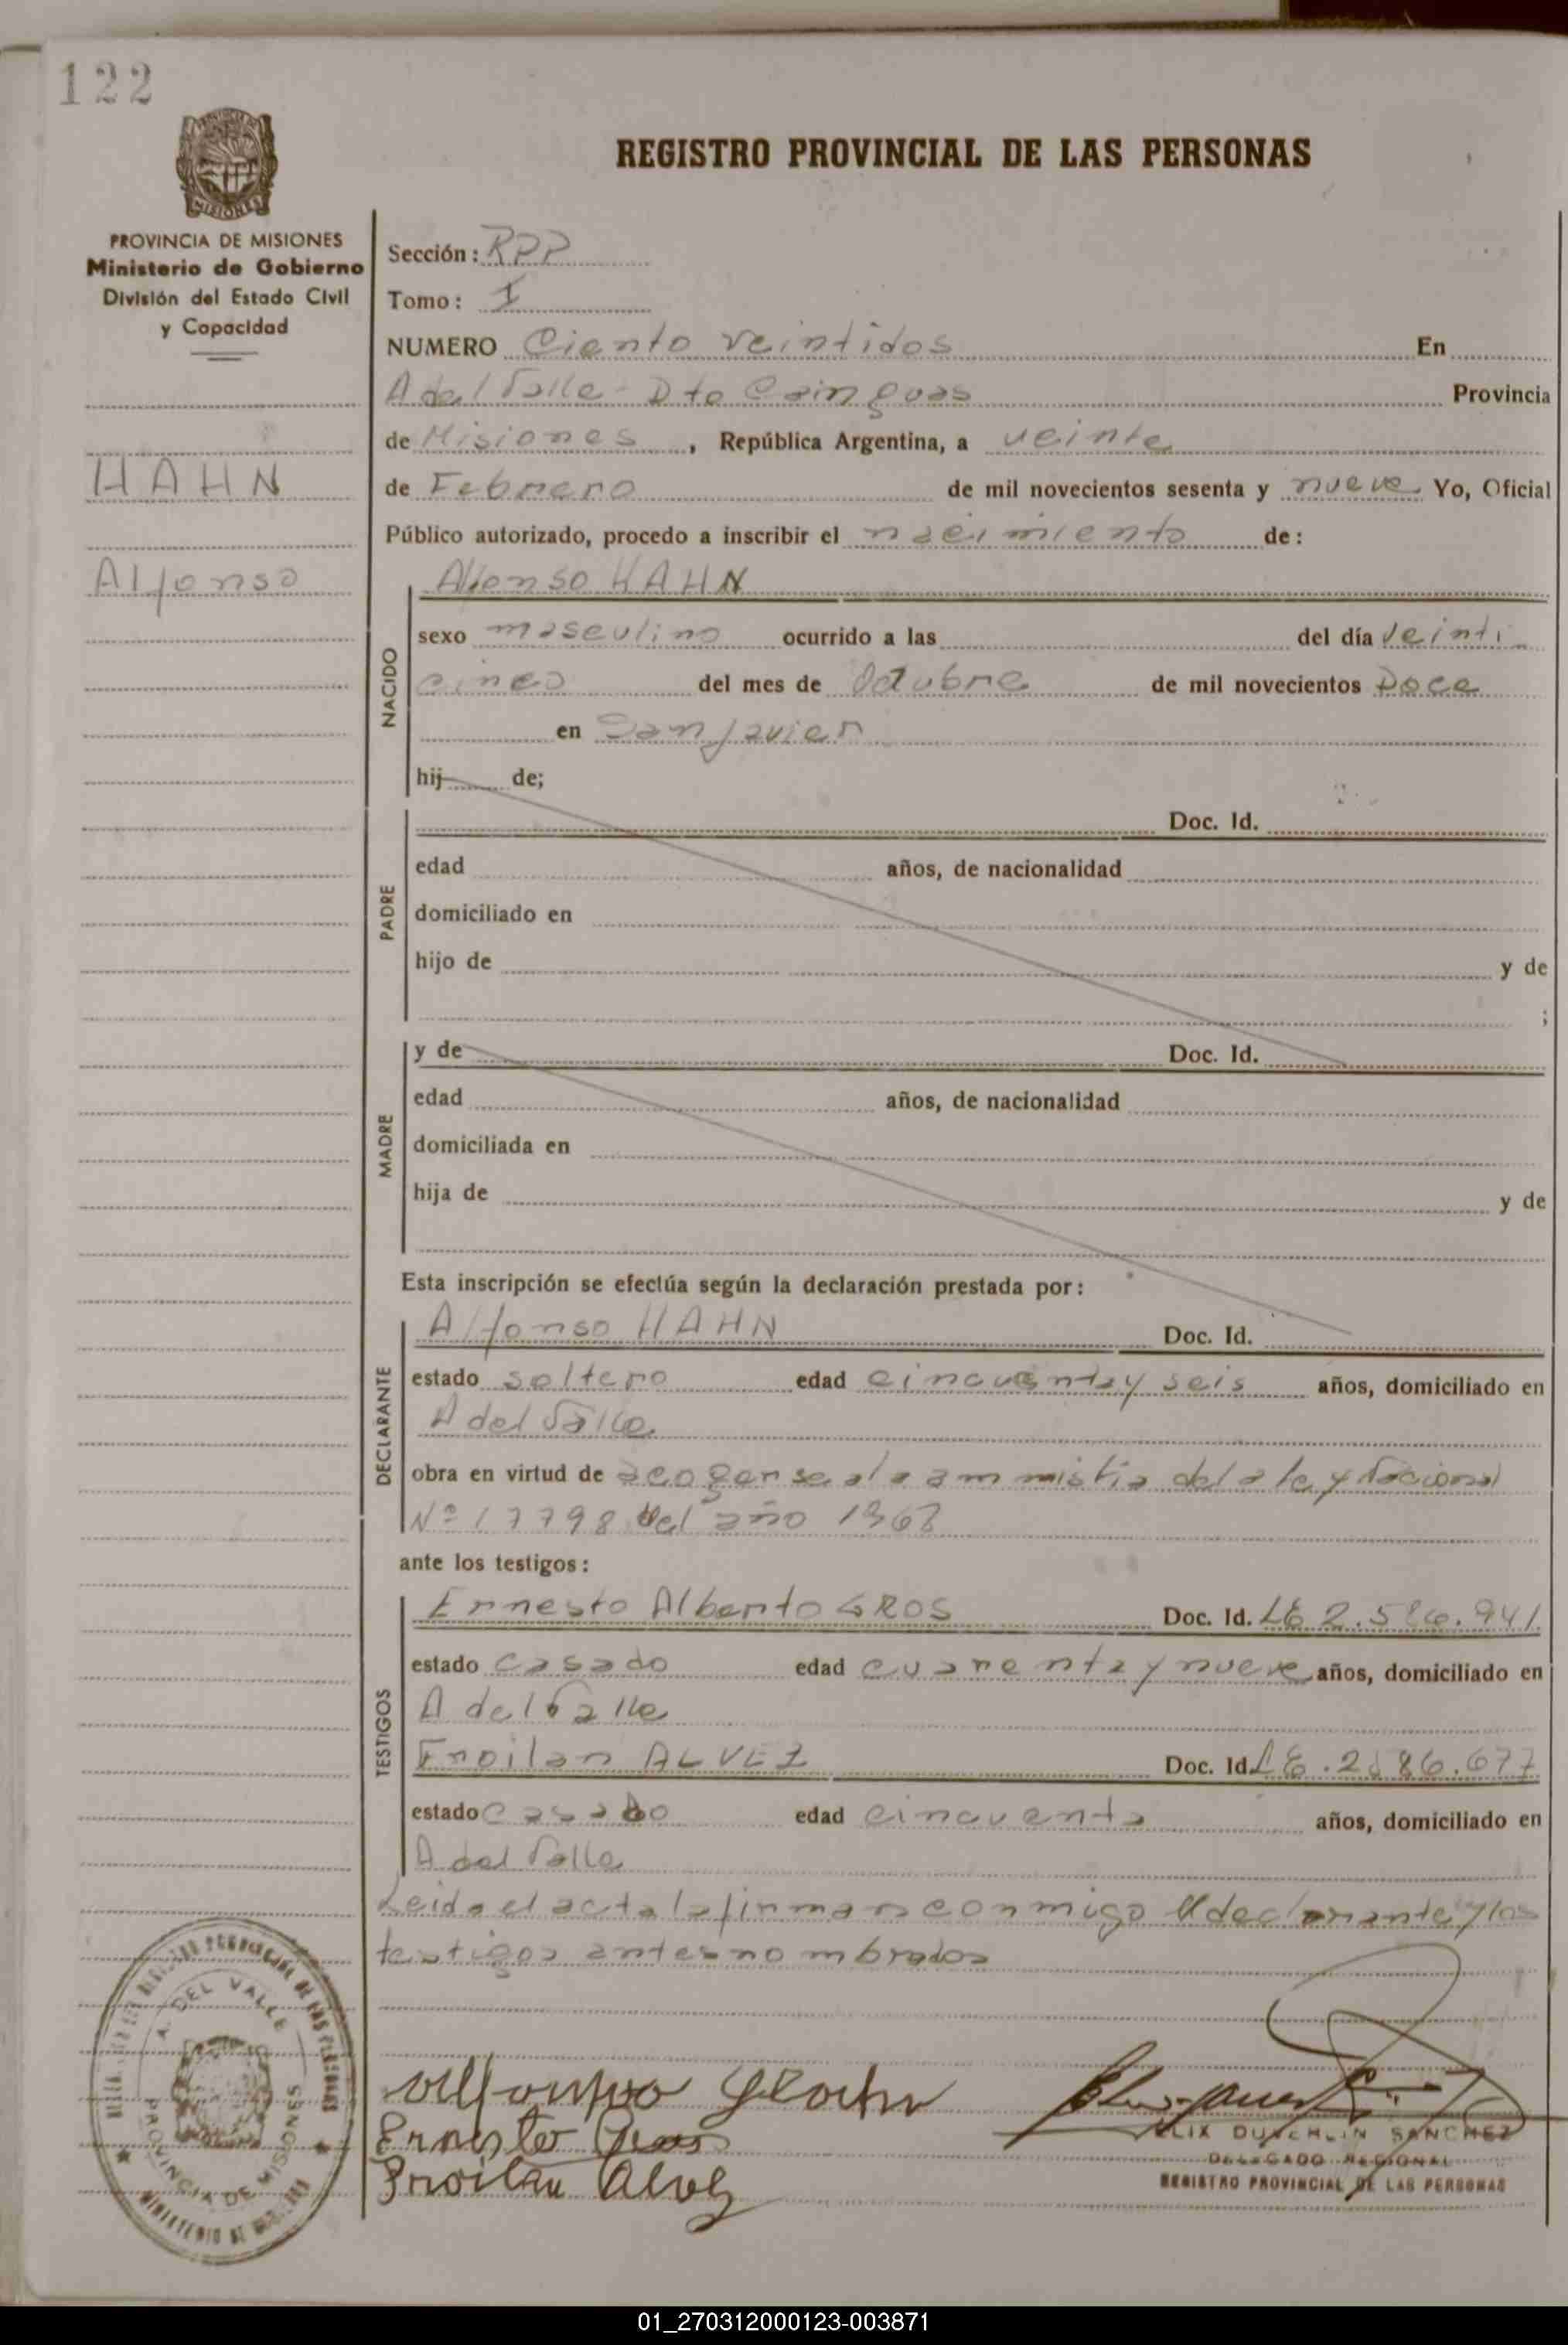 122
REGISTRO PROVINCIAL DE LAS PERSONAS
MISIONES
PROVINCIA DE MISIONES
Ministerio de Gobierno
División del Estado Civil
y Capacidad
HAHN
Alfonso
Sección: RPP
Tomo: I
NUMERO Ciento veintidos En
A del Valle - Dto Cainguas Provincia
de Misiones, República Argentina, a veinte
de Febrero de mil novecientos sesenta y nueve Yo, Oficial
Público autorizado, procedo a inscribir el nacimiento de:
NACIDO
Alfonso HAHN
sexo masculino ocurrido a las del día veinti
cinco del mes de Octubre de mil novecientos Doce
en San Javier
hij de;
PADRE
Doc. Id.
edad años, de nacionalidad
domiciliado en
hijo de y de
;
MADRE
y de Doc. Id.
edad años, de nacionalidad
domiciliada en
hija de y de
Esta inscripción se efectúa según la declaración prestada por:
DECLARANTE
Alfonso HAHN Doc. Id.
estado soltero edad cincuenta y seis años, domiciliado en
A del Valle
obra en virtud de acogerse a la ammistia de la ley Nacional
Nº 17798 del año 1968
ante los testigos:
TESTIGOS
Ernesto Alberto GROS Doc. Id. LE 2.586.941
estado casado edad cuarenta y nueve años, domiciliado en
A del Valle
Froilan ALVEZ Doc. Id. LE.2586.677
estado casado edad cincuenta años, domiciliado en
A del Valle
Leida el acta la firman conmigo el declarante y los
testigos antes nombrados
Alfonso Hahn
Ernesto Gros
Froilan Alvez
SANCHEZ
DELEGADO REGIONAL
REGISTRO PROVINCIAL DE LAS PERSONAS
A. DEL VALLE
PROVINCIA DE MISIONES
01_270312000123-003871